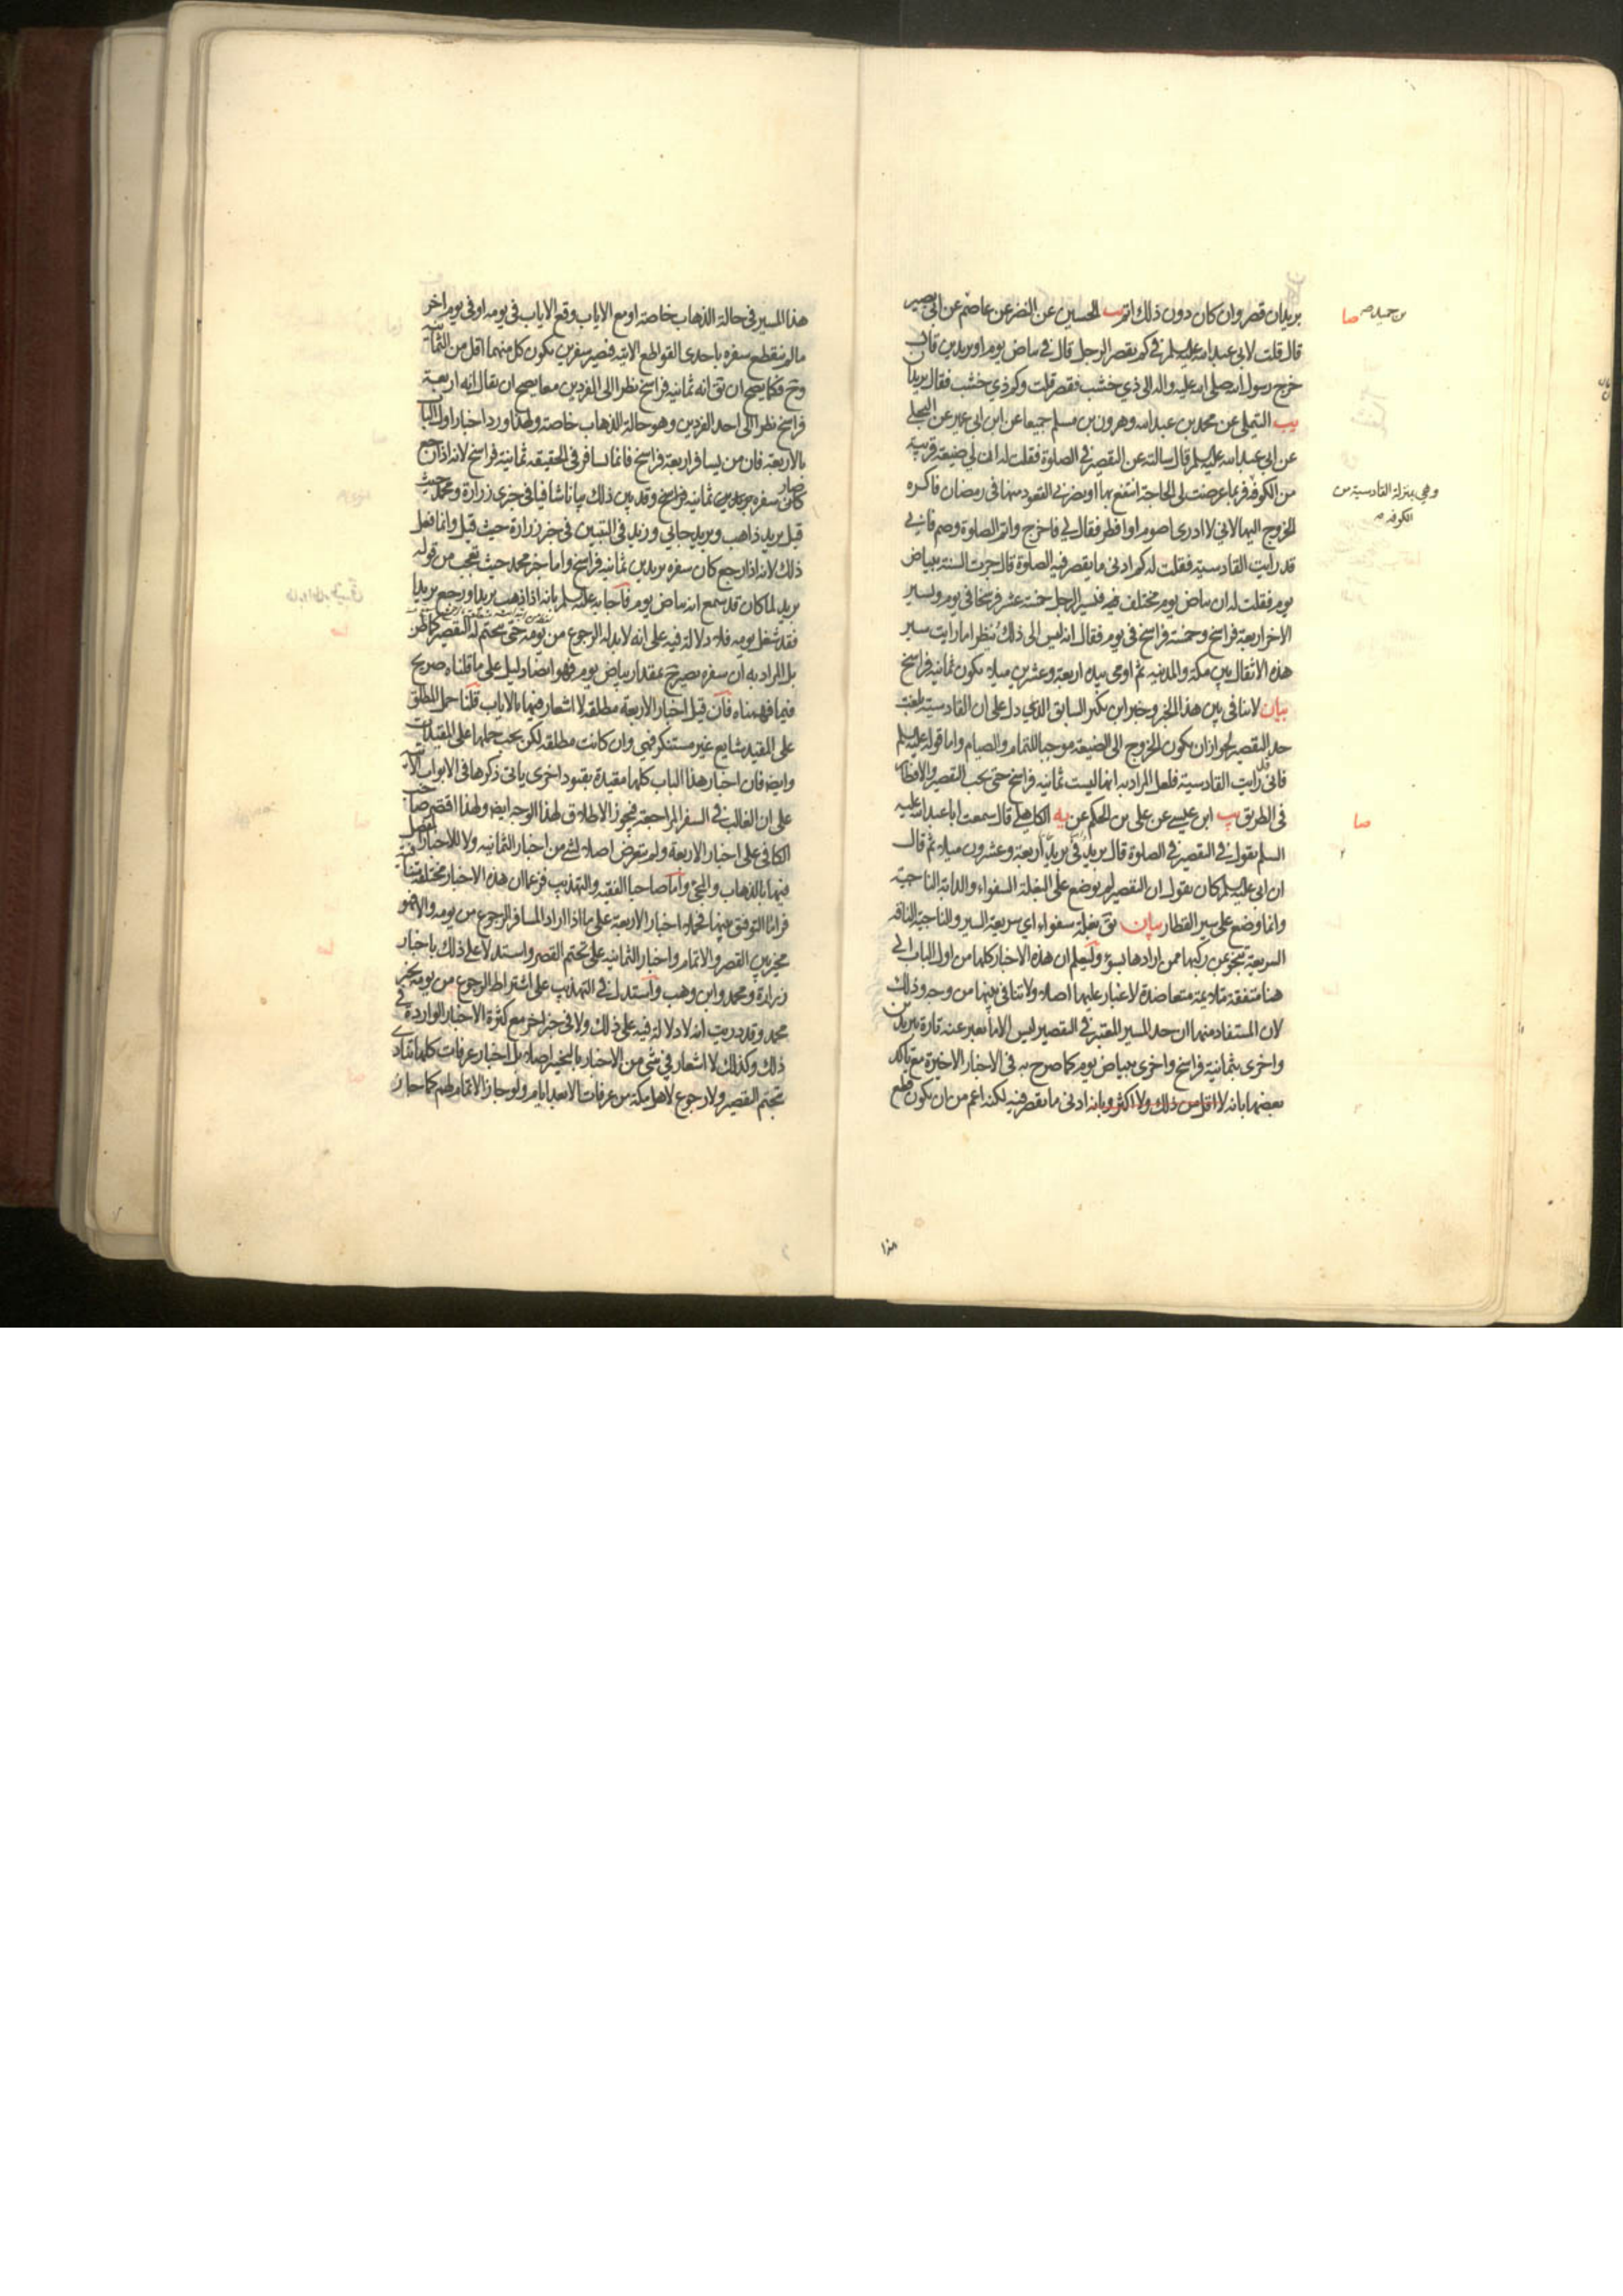 بريدان قصر وان كان دون ذلك اتم يب الحسين عن النضر عن عاصم عن ابي بصير
بن حميد صح صا
قال قلت لابي عبد الله عليه السلم في كم يقصر الرجل قال في بياض يوم او بريدين قال فان
خرج رسول الله صلى الله عليه واله الى ذي خشب فقصر قلت وكم ذي خشب فقال بريدا
يب التيملي عن محمد بن عبد الله وهرون بن مسلم جميعا عن ابن ابي عمير عن البجلي
عن ابي عبد الله عليه السلم قال سالته عن التقصير في الصلوة فقلت له ان لي ضيعة قريبة
من الكوفة فربما عرضت لي الحاجة انتفع بها او يضر بي القعود عنها في رمضان فاكره
وهي بمنزلة القادسية من
الكوفة صح
الخروج اليها لاني لا ادري اصوم او افطر فقال لي فاخرج واتم الصلوة وصم فاني
قد رايت القادسية فقلت له كم ادنى ما يقصر فيه الصلوة قال جرت السنة ببياض
يوم فقلت له ان بياض يوم مختلف فيسير الرجل خمسة عشر فرسخا في يوم ويسير
الاخر اربعة فراسخ وخمسة فراسخ في يوم فقال انه ليس الى ذلك ينظر اما رايت سير
هذه الاثقال بين مكة والمدينة ثم اومى بيده اربعة وعشرين ميلا يكون ثمانية فراسخ
بيان لا ينافي بين هذا الخبر وخبر ابن بكير السابق الذي دل على ان القادسية بلغت
حد التقصير لجواز ان يكون الخروج الى الضيعة موجبا للتمام والصيام واما قوله عليه السلم
فاني قد رايت القادسية فلعل المراد به انها ليست ثمانية فراسخ حتى يجب التقصير والافطار
في الطريق يب ابن عيسى عن علي بن الحكم عن يه الكاهلي قال سمعت ابا عبد الله عليه
صا
السلم يقول في التقصير في الصلوة قال بريد في بريد اربعة وعشرون ميلا ثم قال
ان ابي عليه السلم كان يقول ان التقصير لم يوضع على البغلة السفواء والدابة الناجية
وانما وضع على سير القطار بيان يق بغلة سفواء اي سريعة السير والناجية الناقة
السريعة تنجو عن ركبها ممن ارادها بسوء وليعلم ان هذه الاخبار كلها من اول الباب الى
هنا متفقة متلائمة متعاضدة لا غبار عليها اصلا ولا تنافي بينها من وجه وذلك
لان المستفاد منها ان حد المسير المعتبر في التقصير ليس الا ما يعبر عنه تارة ببريدين
واخرى بثمانية فراسخ واخرى ببياض يوم كما صرح به في الاخبار الاخيرة مع تاكد
بعضها بانه لا اقل من ذلك ولا اكثر وبانه ادنى ما يقصر فيه لكنه اعم من ان يكون قطع
هذا
هذا المسير في حالة الذهاب خاصة او مع الاياب وقع الاياب في يومه او في يوم اخر
ما لم ينقطع سفره باحدى القواطع الاتية فيصير سفرين يكون كل منهما اقل من الثمانية
وح فكما يصح ان يق انه ثمانية فراسخ نظرا الى الفردين معا يصح ان يقال انه اربعة
فراسخ نظرا الى احد الفردين وهو حالة الذهاب خاصة ولهذا ورد اخبار اول الباب
بالاربعة فان من يسافر اربعة فراسخ فانما يسافر في الحقيقة ثمانية فراسخ لانه اذا رجع
صار سفره بريدين ثمانية فراسخ وقد بين ذلك بيانا شافيا في خبري زرارة ومحمد حيث
قيل بريد ذاهب وبريد جائي وزيد في التبيين في خبر زرارة حيث قيل وانما فعل
ذلك لانه اذا رجع كان سفره بريدين ثمانية فراسخ واما خبر محمد حيث تعجب من قوله
بريد لما كان قد سمع انه بياض يوم فاجابه عليه السلم بانه اذا ذهب بريدا ورجع بريدا
فقد شغل يومه فلا دلالة فيه على انه لا بد له الرجوع من يومه حتى يتحتم له التقصير كما ظن
بل المراد به ان سفره يصير ح بمقدار بياض يوم فهو ايضا دليل على ما قلناه صريح
فيما فهمناه فان قيل اخبار الاربعة مطلقة لا اشعار فيها بالاياب قلنا حمل المطلق
على المقيد شايع غير مستنكر فهي وان كانت مطلقة لكن يجب حملها على المقيدات
وايضا فان اخبار هذا الباب كلها مقيدة بقيود اخرى ياتي ذكرها في الابواب الاتية
على ان الغالب في السفر المراجعة فيجوز الاطلاق لهذا الوجه ايضا ولهذا اقتصر صاحب
الكافي على اخبار الاربعة ولم يتعرض اصلا لشيء من اخبار الثمانية ولا للاخبار المفصل
فيها بالذهاب والمجيء واما صاحبا الفقيه والتهذيب فزعما ان هذه الاخبار مختلفة متنافية
فراما التوفيق بينها فحملا اخبار الاربعة على ما اذا اراد المسافر الرجوع من يومه والا فهو
مخير بين القصر والاتمام واخبار الثمانية على تحتم القصر واستدلا على ذلك باخبار
زرارة ومحمد وابن وهب واستدل في التهذيب على اشتراط الرجوع من يومه بخبر
محمد وقد دريت انه لا دلالة فيه على ذلك ولا في خبر اخر مع كثرة الاخبار الواردة في
ذلك وكذلك لا اشعار في شيء من الاخبار بالتخيير اصلا بل اخبار عرفات كلها تنادي
بتحتم التقصير ولا رجوع لاهل مكة من عرفات الا بعد ايام ولو جاز الاتمام لهم كما جاز